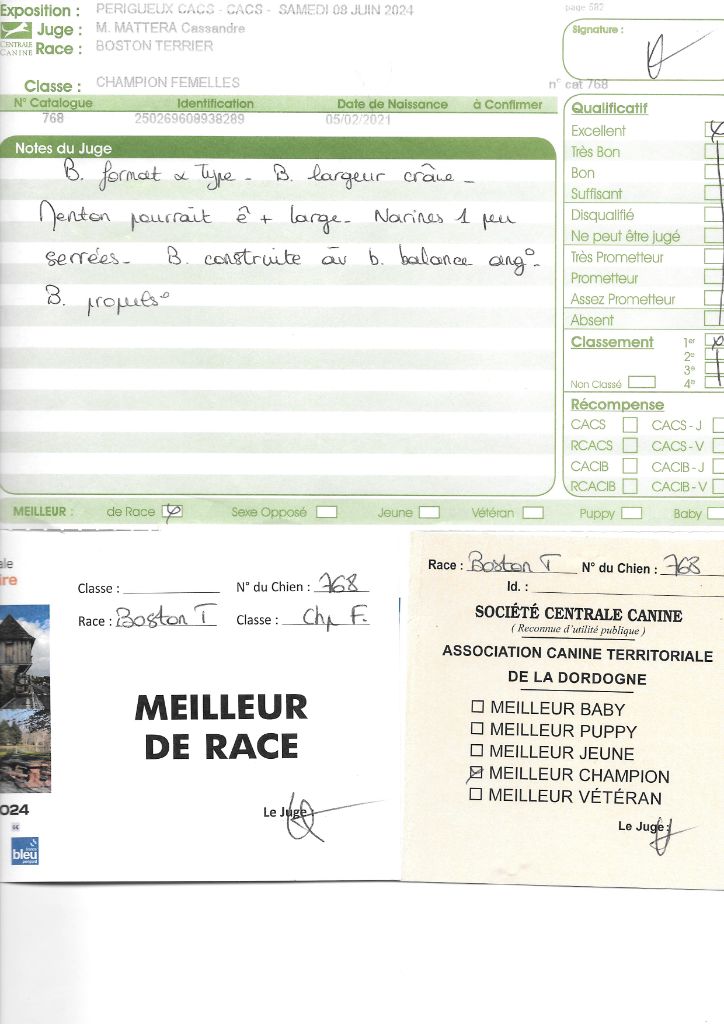 Exposition : PERIGUEUX CACS - CACS - SAMEDI 08 JUIN 2024
page 582
Juge : M. MATTERA Cassandre
CENTRALE CANINE
Race : BOSTON TERRIER
Signature :
Classe : CHAMPION FEMELLES
n° cat 768
N° Catalogue Identification Date de Naissance à Confirmer
768 250269608938289 05/02/2021
Notes du Juge
B. format & Type - B. largeur crâne -
Menton pourrait ê + large - Narines 1 peu
serrées - B. construite av b. balance ang°-
B. propuls°
Qualificatif
Excellent
Très Bon
Bon
Suffisant
Disqualifié
Ne peut être jugé
Très Prometteur
Prometteur
Assez Prometteur
Absent
Classement 1er
2e
3e
Non Classé 4e
Récompense
CACS CACS - J
RCACS CACS - V
CACIB CACIB - J
RCACIB CACIB - V
MEILLEUR : de Race Sexe Opposé Jeune Vétéran Puppy Baby
Classe : N° du Chien : 768
Race : Boston T Classe : Chp F.
MEILLEUR
DE RACE
Le Juge
024
bleu
Race : Boston T N° du Chien : 768
Id. :
SOCIÉTÉ CENTRALE CANINE
( Reconnue d'utilité publique )
ASSOCIATION CANINE TERRITORIALE
DE LA DORDOGNE
MEILLEUR BABY
MEILLEUR PUPPY
MEILLEUR JEUNE
MEILLEUR CHAMPION
MEILLEUR VÉTÉRAN
Le Juge :